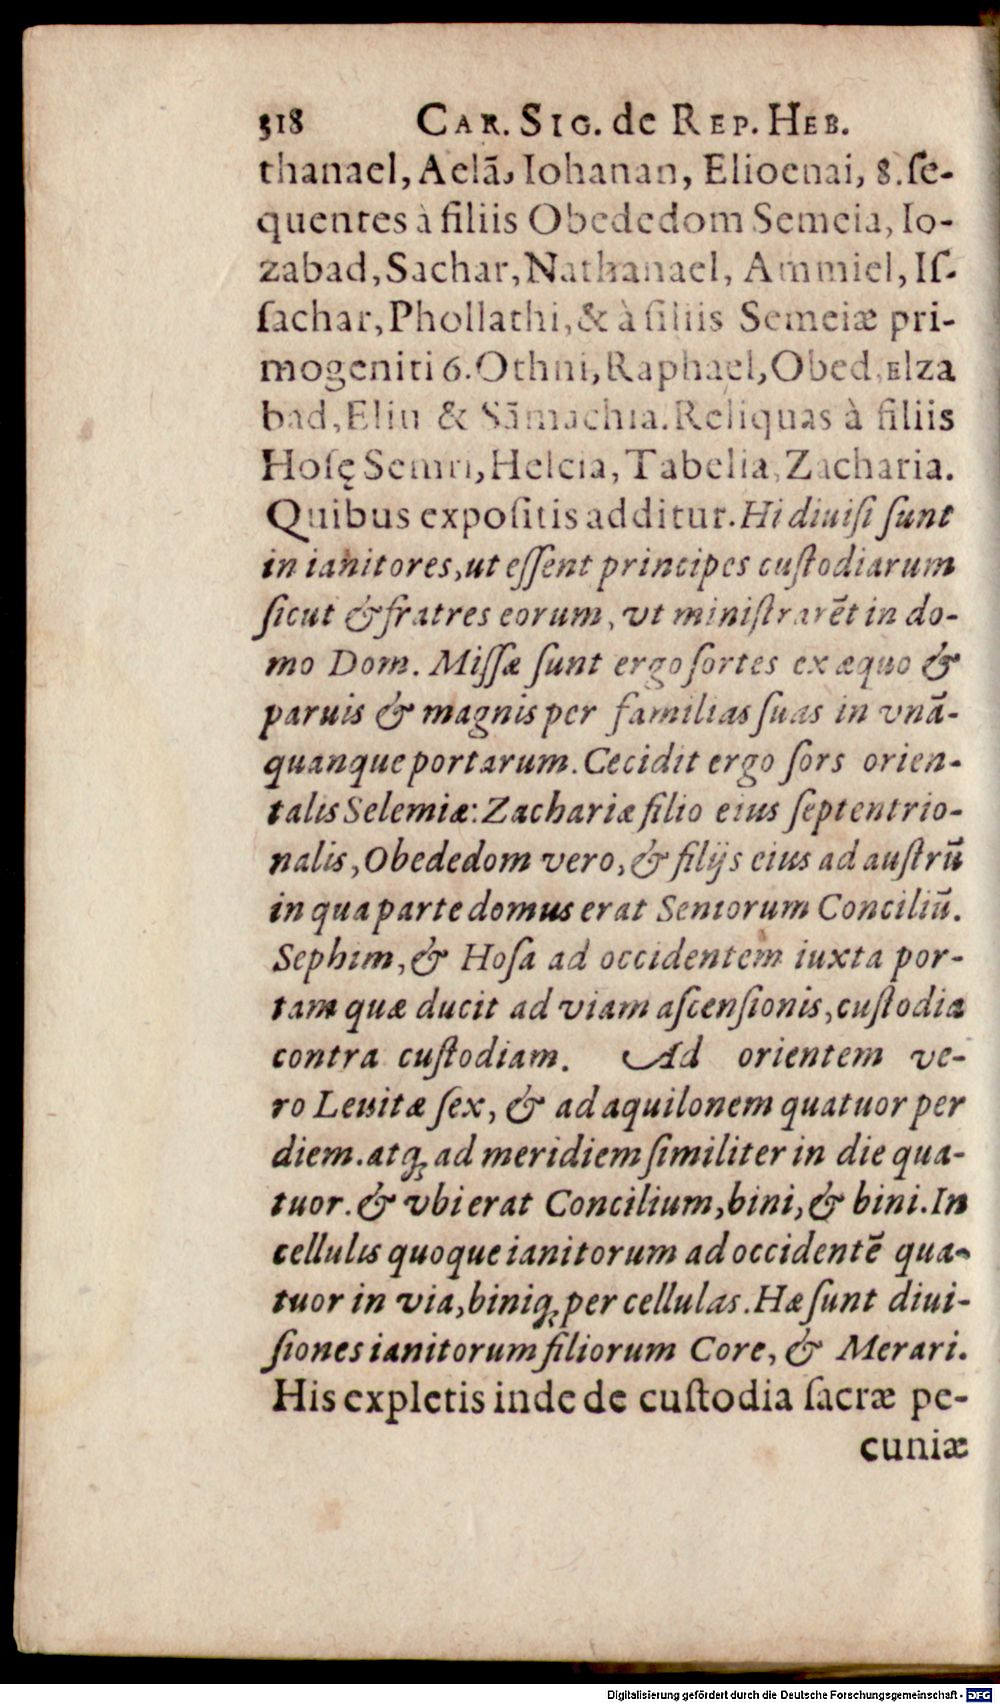 318 CAR. SIG. de REP. HEB.
thanael, Aelã, Iohanan, Elioenai, 8. ſe-
quentes à filiis Obededom Semeia, Io-
zabad, Sachar, Nathanael, Ammiel, Iſ-
ſachar, Phollathi, & à filiis Semeiæ pri-
mogeniti 6. Othni, Raphael, Obed, Elza
bad, Eliu & Sãmachia. Reliquas à filiis
Hoſę Semri, Helcia, Tabelia, Zacharia.
Quibus expoſitis additur. Hi diuiſi ſunt
in ianitores, ut eſſent principes cuſtodiarum
ſicut & fratres eorum, vt miniſtrarẽt in do-
mo Dom. Miſſæ ſunt ergo ſortes ex æquo &
paruis & magnis per familias ſuas in vnã-
quanque portarum. Cecidit ergo ſors orien-
talis Selemiæ: Zachariæ filio eius ſeptentrio-
nalis, Obededom vero, & filijs eius ad auſtrũ
in qua parte domus erat Seniorum Conciliũ.
Sephim, & Hoſa ad occidentem iuxta por-
tam quæ ducit ad viam aſcenſionis, cuſtodia
contra cuſtodiam. Ad orientem ve-
ro Leuitæ ſex, & ad aquilonem quatuor per
diem. atq; ad meridiem ſimiliter in die qua-
tuor. & vbi erat Concilium, bini, & bini. In
cellulis quoque ianitorum ad occidentẽ qua-
tuor in via, biniq; per cellulas. Hæ ſunt diui-
ſiones ianitorum filiorum Core, & Merari.
His expletis inde de cuſtodia ſacræ pe-
cuniæ
Digitalisierung gefördert durch die Deutsche Forschungsgemeinschaft - DFG